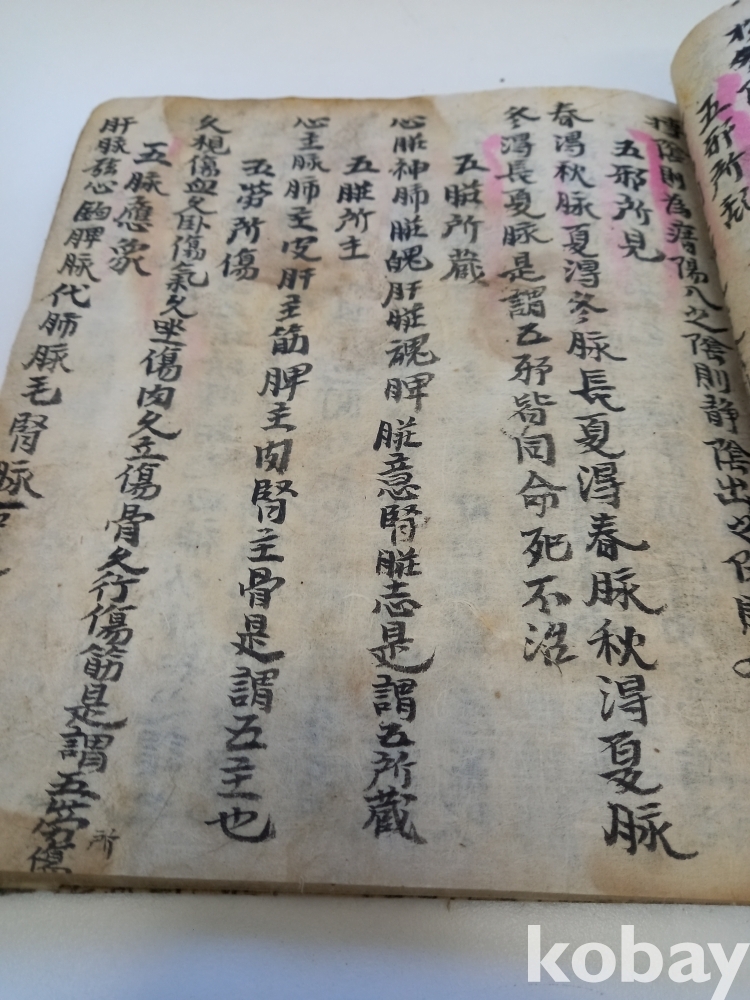 五邪所
摶陰則為瘖陽入之陰則靜陰出之
五邪所見
春淂秋脉夏淂冬脉長夏淂春脉秋淂夏脉
冬淂長夏脉是謂五邪皆同命死不治
五脏所藏
心脏神肺脏魄肝脏魂脾脏意腎脏志是謂五所藏
五脏所主
心主脉肺主皮肝主筋脾主肉腎主骨是謂五主也
五劳所傷
久視傷血久卧傷氣久坐傷肉久立傷骨久行傷筋是謂五劳所傷
五脉應象
肝脉弦心鈎脾脉代肺脉毛腎脉
kobay